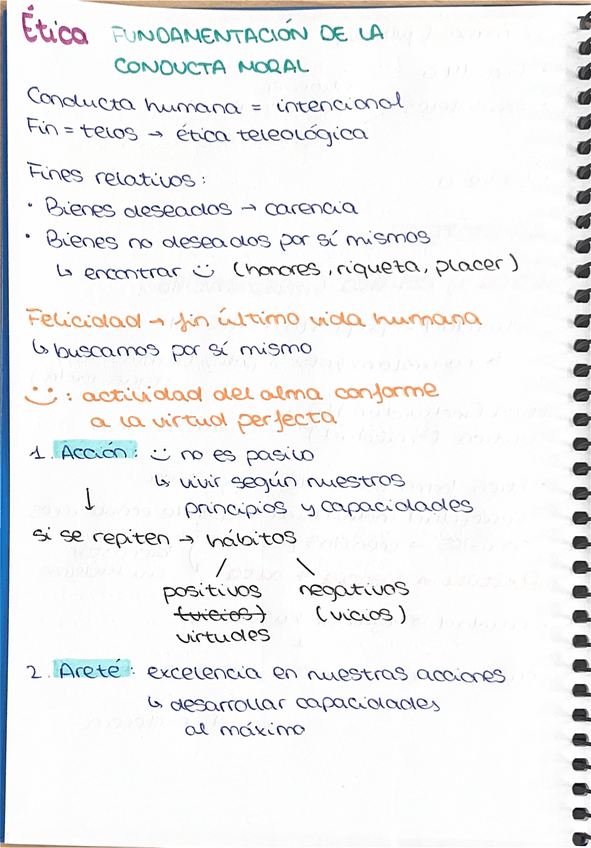 Ética FUNDAMENTACIÓN DE LA
CONDUCTA MORAL
Conducta humana = intencional
Fin = telos → ética teleológica
Fines relativos:
· Bienes deseados → carencia
· Bienes no deseados por sí mismos
↳ encontrar :) (honores, riqueta, placer)
Felicidad → fin último vida humana
↳ buscamos por sí mismo
:) : actividad del alma conforme
a la virtud perfecta
1. Acción: :) no es pasivo
↳ vivir según nuestros
↓ principios y capacidades
si se repiten → hábitos
/ \
positivos negativos
(vicios) (vicios)
virtudes
2. Areté: excelencia en nuestras acciones
↳ desarrollar capacidades
al máximo